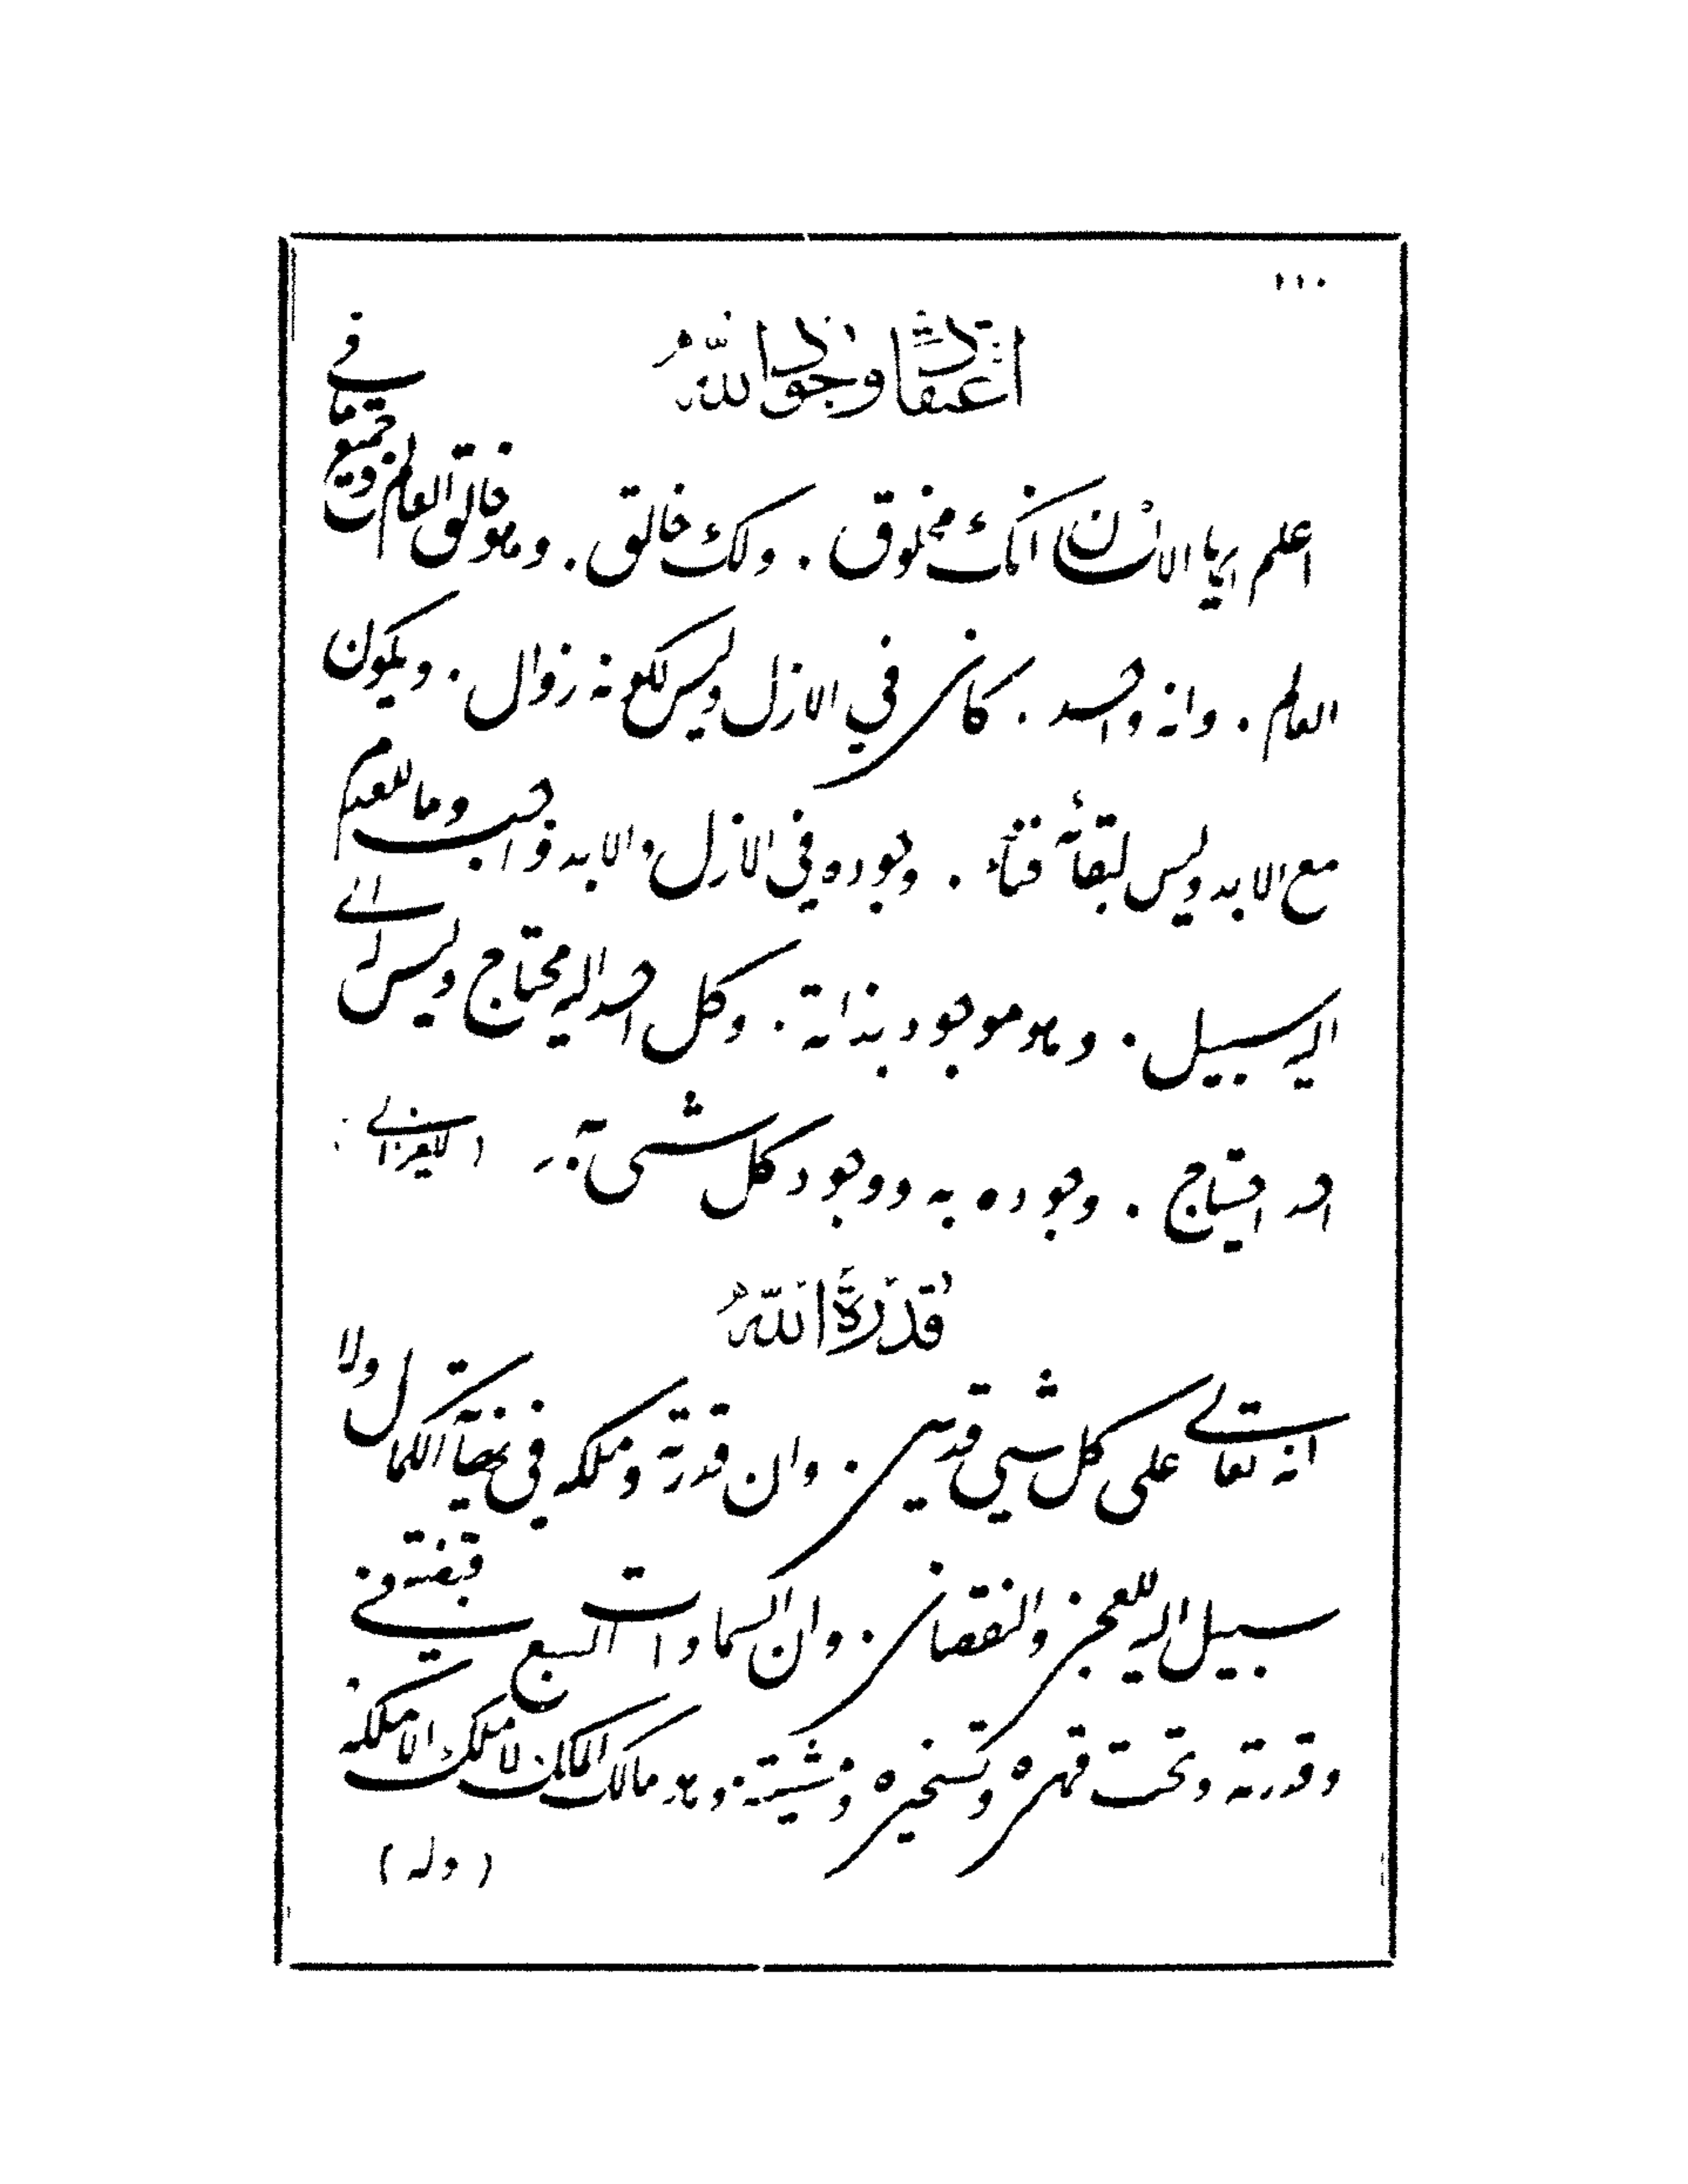 ١١٠
اعتقاد وجود الله
اعلم ايها الانسان انك مخلوق . ولك خالق . وهو خالق العالم وجميع ما في
العالم . وانه واحد . كان في الازل وليس لكونه زوال . ويكون
مع الابد وليس لبقائه فناء . وجوده في الازل والابد واجب وما للعدم
اليه سبيل . وهو موجود بذاته . وكل احد اليه محتاج وليس له الى
احد احتياج . وجوده به ووجود كل شيء به ( للغزالي )
قدرة الله
انه تعالى على كل شيء قدير . وان قدرته وملكه في نهاية الكمال ولا
سبيل اليه للعجز والنقصان . وان السماوات السبع في قبضته
وقدرته وتحت قهره وتسخيره ومشيته وهو مالك الملك لا ملك الا ملكه
( وله )